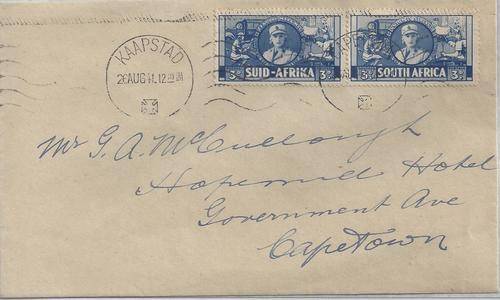 KAAPSTAD
26 AUG 41. 12
3D SUID-AFRIKA 3D
3D SOUTH AFRICA 3D
Mr G. A. McCullough
Hopemill Hotel
Government Ave
CapeTown